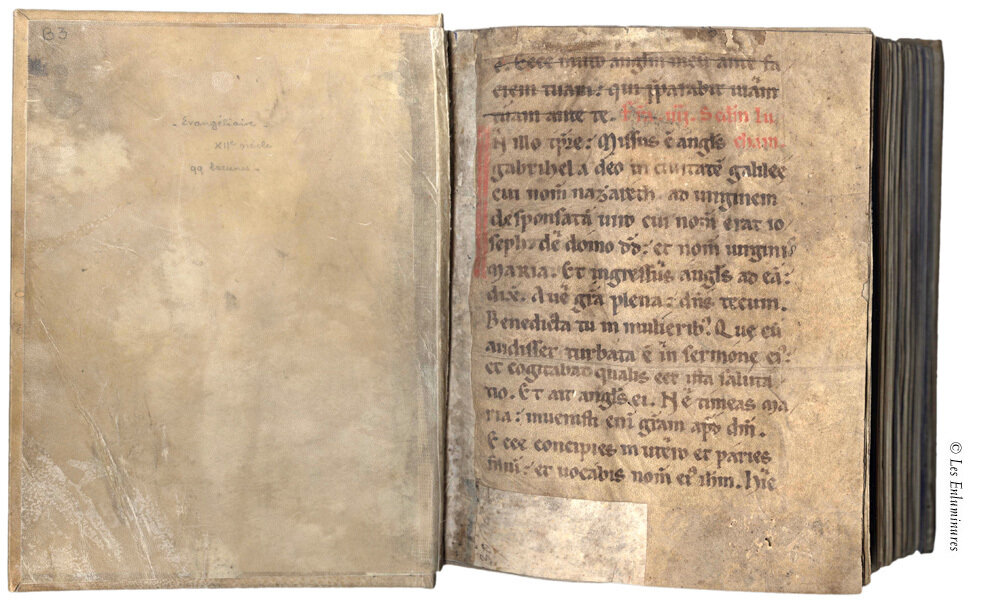 B3
- Evangéliaire -
XIIe siècle
99 lacunes -
e. Ecce mitto anglm meu ante fa
ciem tuam: qui pparabit uiam
tuam ante te. Fra. iiij. Scdm Lu
N illo tpre: Missus ē angls cham.
gabrihel a deo in ciuitatē galilee
cui nom̄ nazareth. ad uirginem
desponsatā uiro cui nom̄ erat io
seph: de domo dd: et nom̄ uirgini
MARIA. Et ingressus angls ad eā:
dix. Aue gr̄a plena: dn̄s tecum.
Benedicta tu in mulierib. Que cū
audisset turbata ē in sermone ei:
et cogitabat qualis eet ista saluta
tio. Et ait angls ei. Ne timeas ma
ria: inuenisti eni gr̄am apd dm̄.
Ecce concipies in utero et paries
filiu: et uocabis nom̄ ei ihm. Hic
© Les Enluminures